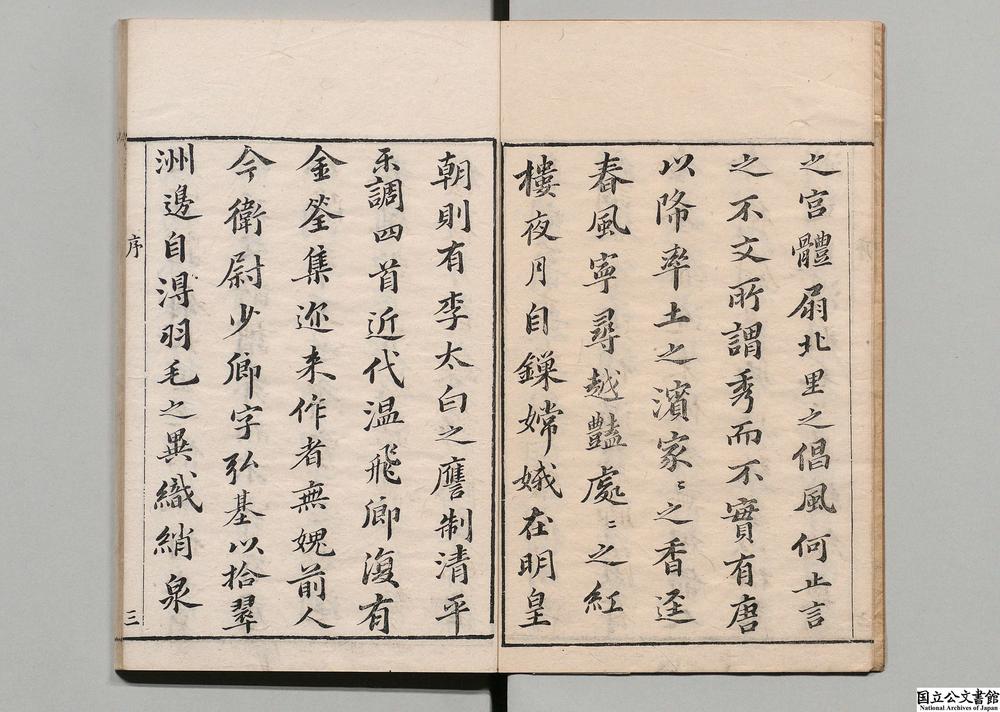 之宮體扇北里之倡風何止言
之不文所謂秀而不實有唐
以降率土之濱家〻之香逕
春風寧尋越豔處〻之紅
樓夜月自鏁嫦娥在明皇
朝則有李太白之應制清平
樂調四首近代温飛卿復有
金筌集迩来作者無媿前人
今衛尉少卿字弘基以拾翠
洲邊自淂羽毛之異織綃泉
序
三
国立公文書館
National Archives of Japan